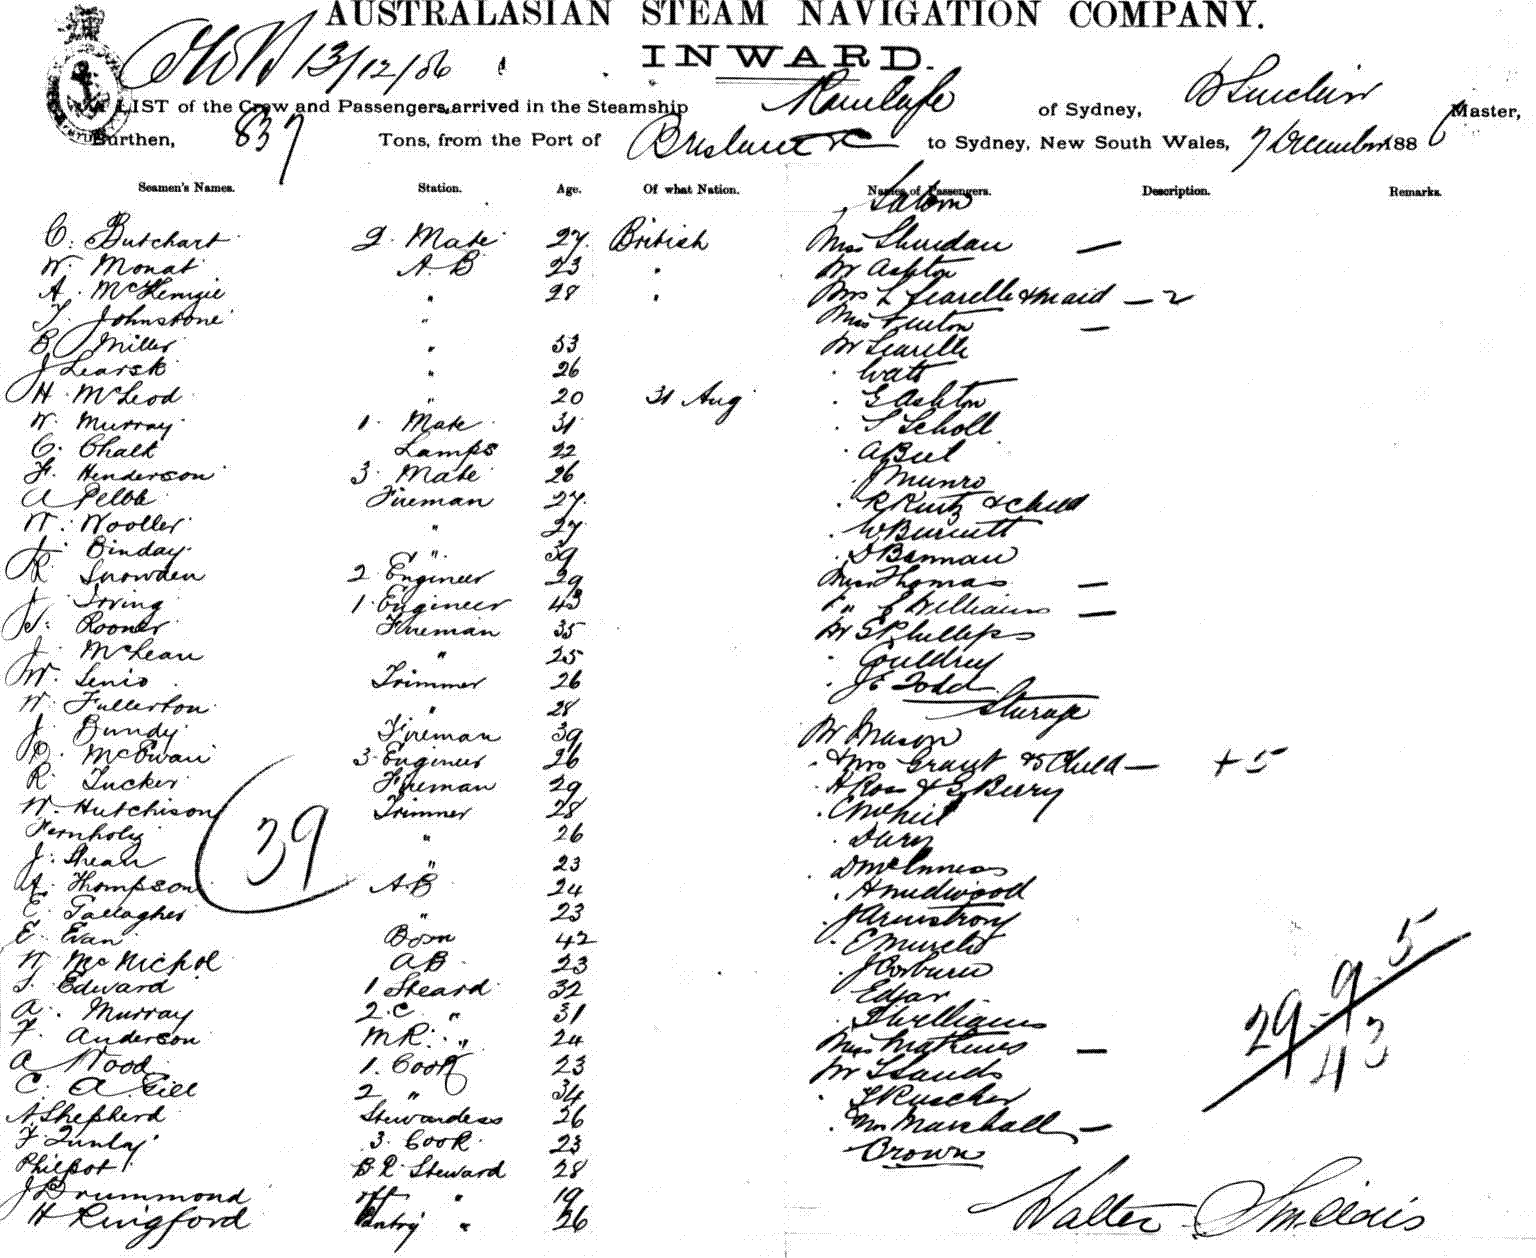 AUSTRALASIAN STEAM NAVIGATION COMPANY.
INWARD.
13/12/86
A LIST of the Crew and Passengers, arrived in the Steamship of Sydney, W Sinclair Master,
Burthen, 837 Tons, from the Port of Brisbane to Sydney, New South Wales, 7 December 1886
Seamen's Names. Station. Age. Of what Nation. Names of Passengers. Description. Remarks.
Saloon
C. Butchart 2. Mate 27 British Miss Sheridan —
W. Monat A.B 23 " Mr Ashton
A. McKenzie " 28 " Mrs L Searelle & maid — 2
T. Johnstone " Miss Fenton —
B. Miller " 33 Mr Searelle
J Learsk " 26 " Watt
H. McLeod " 20 31 Aug " G Ashton
W. Murray 1. Mate 31 " S Scholl
C. Chalk Lamps 22 " A
F. Henderson 3. Mate 26 " J Munro
A Fireman 27 " R Kurtz & child
W. Wooller " 27 " W Burnett
J. Binday " 39 " D Bannan
R. Snowden 2 Engineer 29 Miss Thomas —
J. Irving 1. Engineer 43 " " Williams —
Rooner Fireman 35 Mr G Phillips
J. McLean " 25 " Couldrey
W. Senio Trimmer 26 " J E Todd
W. Fullerton " 28 Sturage
J. Bundy Fireman 39 Mr Mason
D. McEwan 3 Engineer 26 " & Mrs Grant & 5 Child — + 5
R. Tucker Fireman 29 " H Ross & G Berry
W. Hutchison Trimmer 28 " C McNeil
Fernholz " 26 " Dury
J. Shean " 23 " D McInness
A. Thompson A B 24 " H Mudwood
E. Gallagher " 23 " J Armstrong
E. Evan Bosn 42 " E
W McNichol AB 23 " J
T. Edward 1 Steard 32 " Edgar
A. Murray 2.C " 31 " Williams
F. Anderson M R. " 24 Miss Mathews —
A Wood 1. Cook 23 Mr Sands
C. A. Gill 2 " 34 " F Ruscher
A. Shepherd Stewardess 26 " & Mrs Marshall —
F. Dunlay 3. Cook 23 " Brown
Philpot B.R. Steward 28
J Drummond " 19
H Ringford Pantry " 26
39
29 - 9 . 5
43
Walter Sinclair